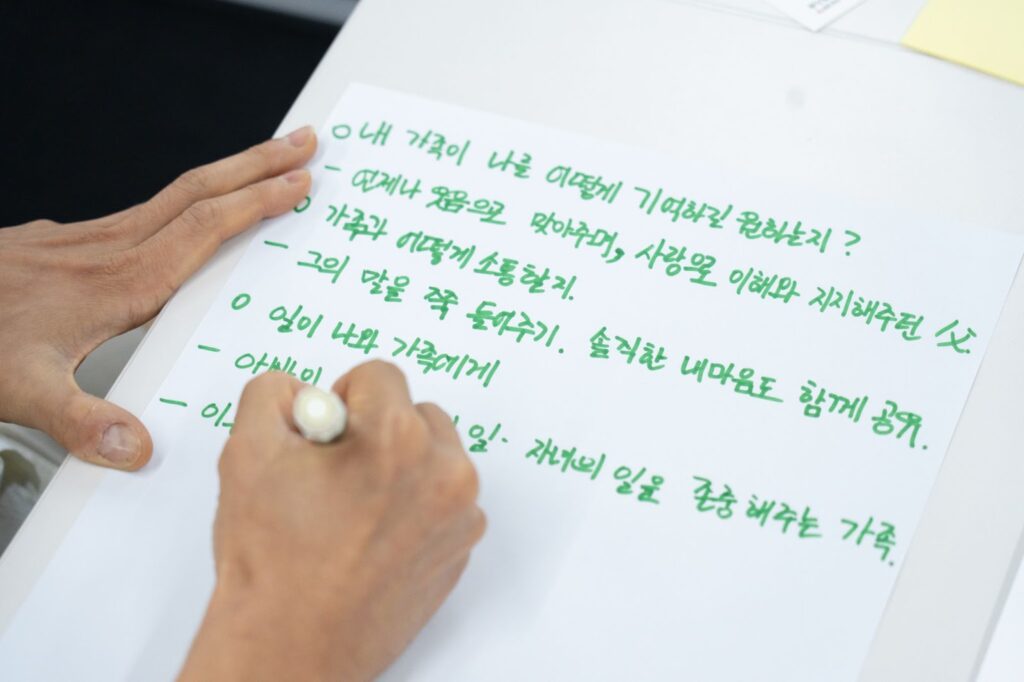 ○ 내 가족이 나를 어떻게 기억하길 원하는지?
- 언제나 웃음으로 맞아주며, 사랑으로 이해와 지지해주던 父.
○ 가족과 어떻게 소통할지.
- 그의 말을 쭉 들어주기. 솔직한 내마음도 함께 공유.
○ 일이 나와 가족에게
- 아빠의
- 일· 자녀의 일을 존중해주는 가족.